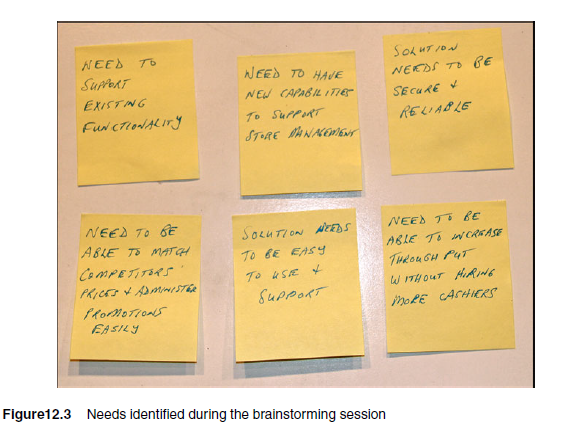 NEED TO
SUPPORT
EXISTING
FUNCTIONALITY
NEED TO HAVE
NEW CAPABILITIES
TO SUPPORT
STORE MANAGEMENT
SOLUTION
NEEDS TO BE
SECURE &
RELIABLE
NEED TO BE
ABLE TO MATCH
COMPETITORS'
PRICES & ADMINISTER
PROMOTIONS
EASILY
SOLUTION NEEDS
TO BE EASY
TO USE &
SUPPORT
NEED TO BE
ABLE TO INCREASE
THROUGH PUT
WITHOUT HIRING
MORE CASHIERS
Figure12.3 Needs identified during the brainstorming session